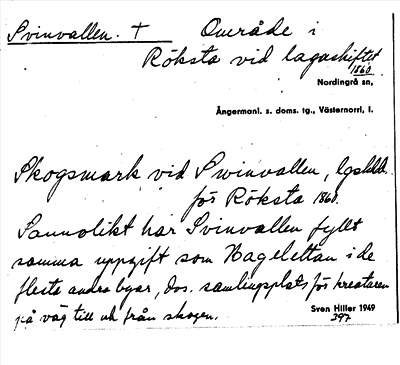 Svinvallen. † Område i
Röksta vid lagaskiftet
1860.
Nordingrå sn,
Ångermanl. s. doms. tg., Västernorrl, l.
Skogsmark vid Swinvallen, lgskhdl.
för Röksta 1860.
Sannolikt har Svinvallen fyllt
samma uppgift som Hagelettan i de
flesta andra byar, dvs. samlingsplats för kreaturen
på väg till och från skogen.
Sven Hiller 1949
397